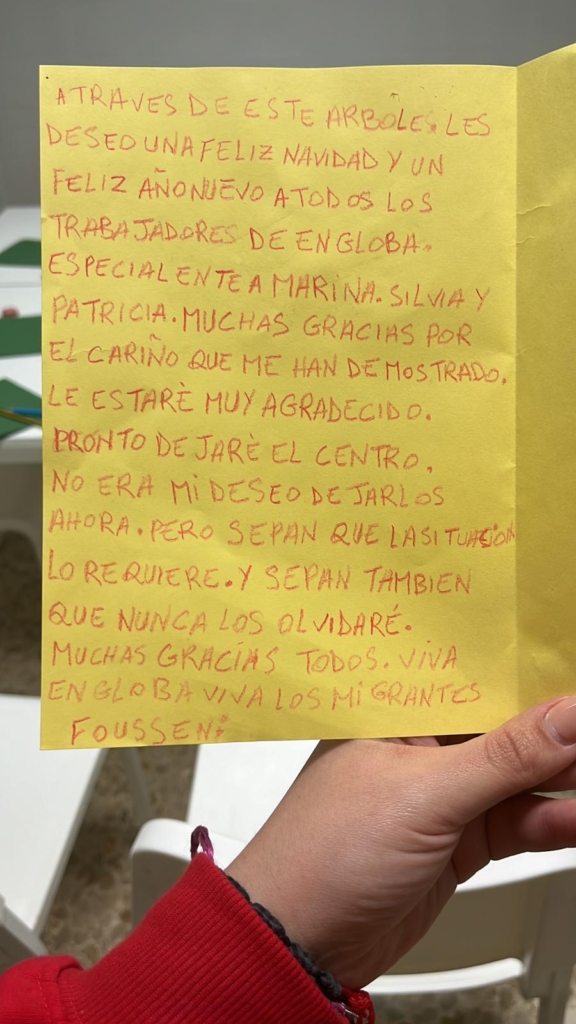 ATRAVES DE ESTE ARBOLES. LES
DESEO UNA FELIZ NAVIDAD Y UN
FELIZ AÑO NUEVO A TODOS LOS
TRABAJADORES DE ENGLOBA.
ESPECIALENTE A MARINA. SILVIA Y
PATRICIA. MUCHAS GRACIAS POR
EL CARIÑO QUE ME HAN DEMOSTRADO.
LE ESTARÈ MUY AGRADECIDO.
PRONTO DEJARÈ EL CENTRO.
NO ERA MI DESEO DEJARLOS
AHORA. PERO SEPAN QUE LA SITUACION
LO REQUIERE. Y SEPAN TAMBIEN
QUE NUNCA LOS OLVIDARÉ.
MUCHAS GRACIAS TODOS. VIVA
ENGLOBA VIVA LOS MIGRANTES
FOUSSENI